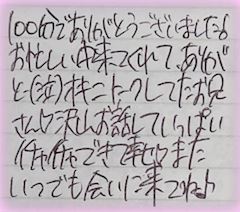 100分でありがとうございました。
お忙しい中来てくれて、ありが
と(泣)オキニトークしてたお兄
さんと沢山お話していっぱい
イチャイチャできて幸せ また
いつでも会いに来てね♪